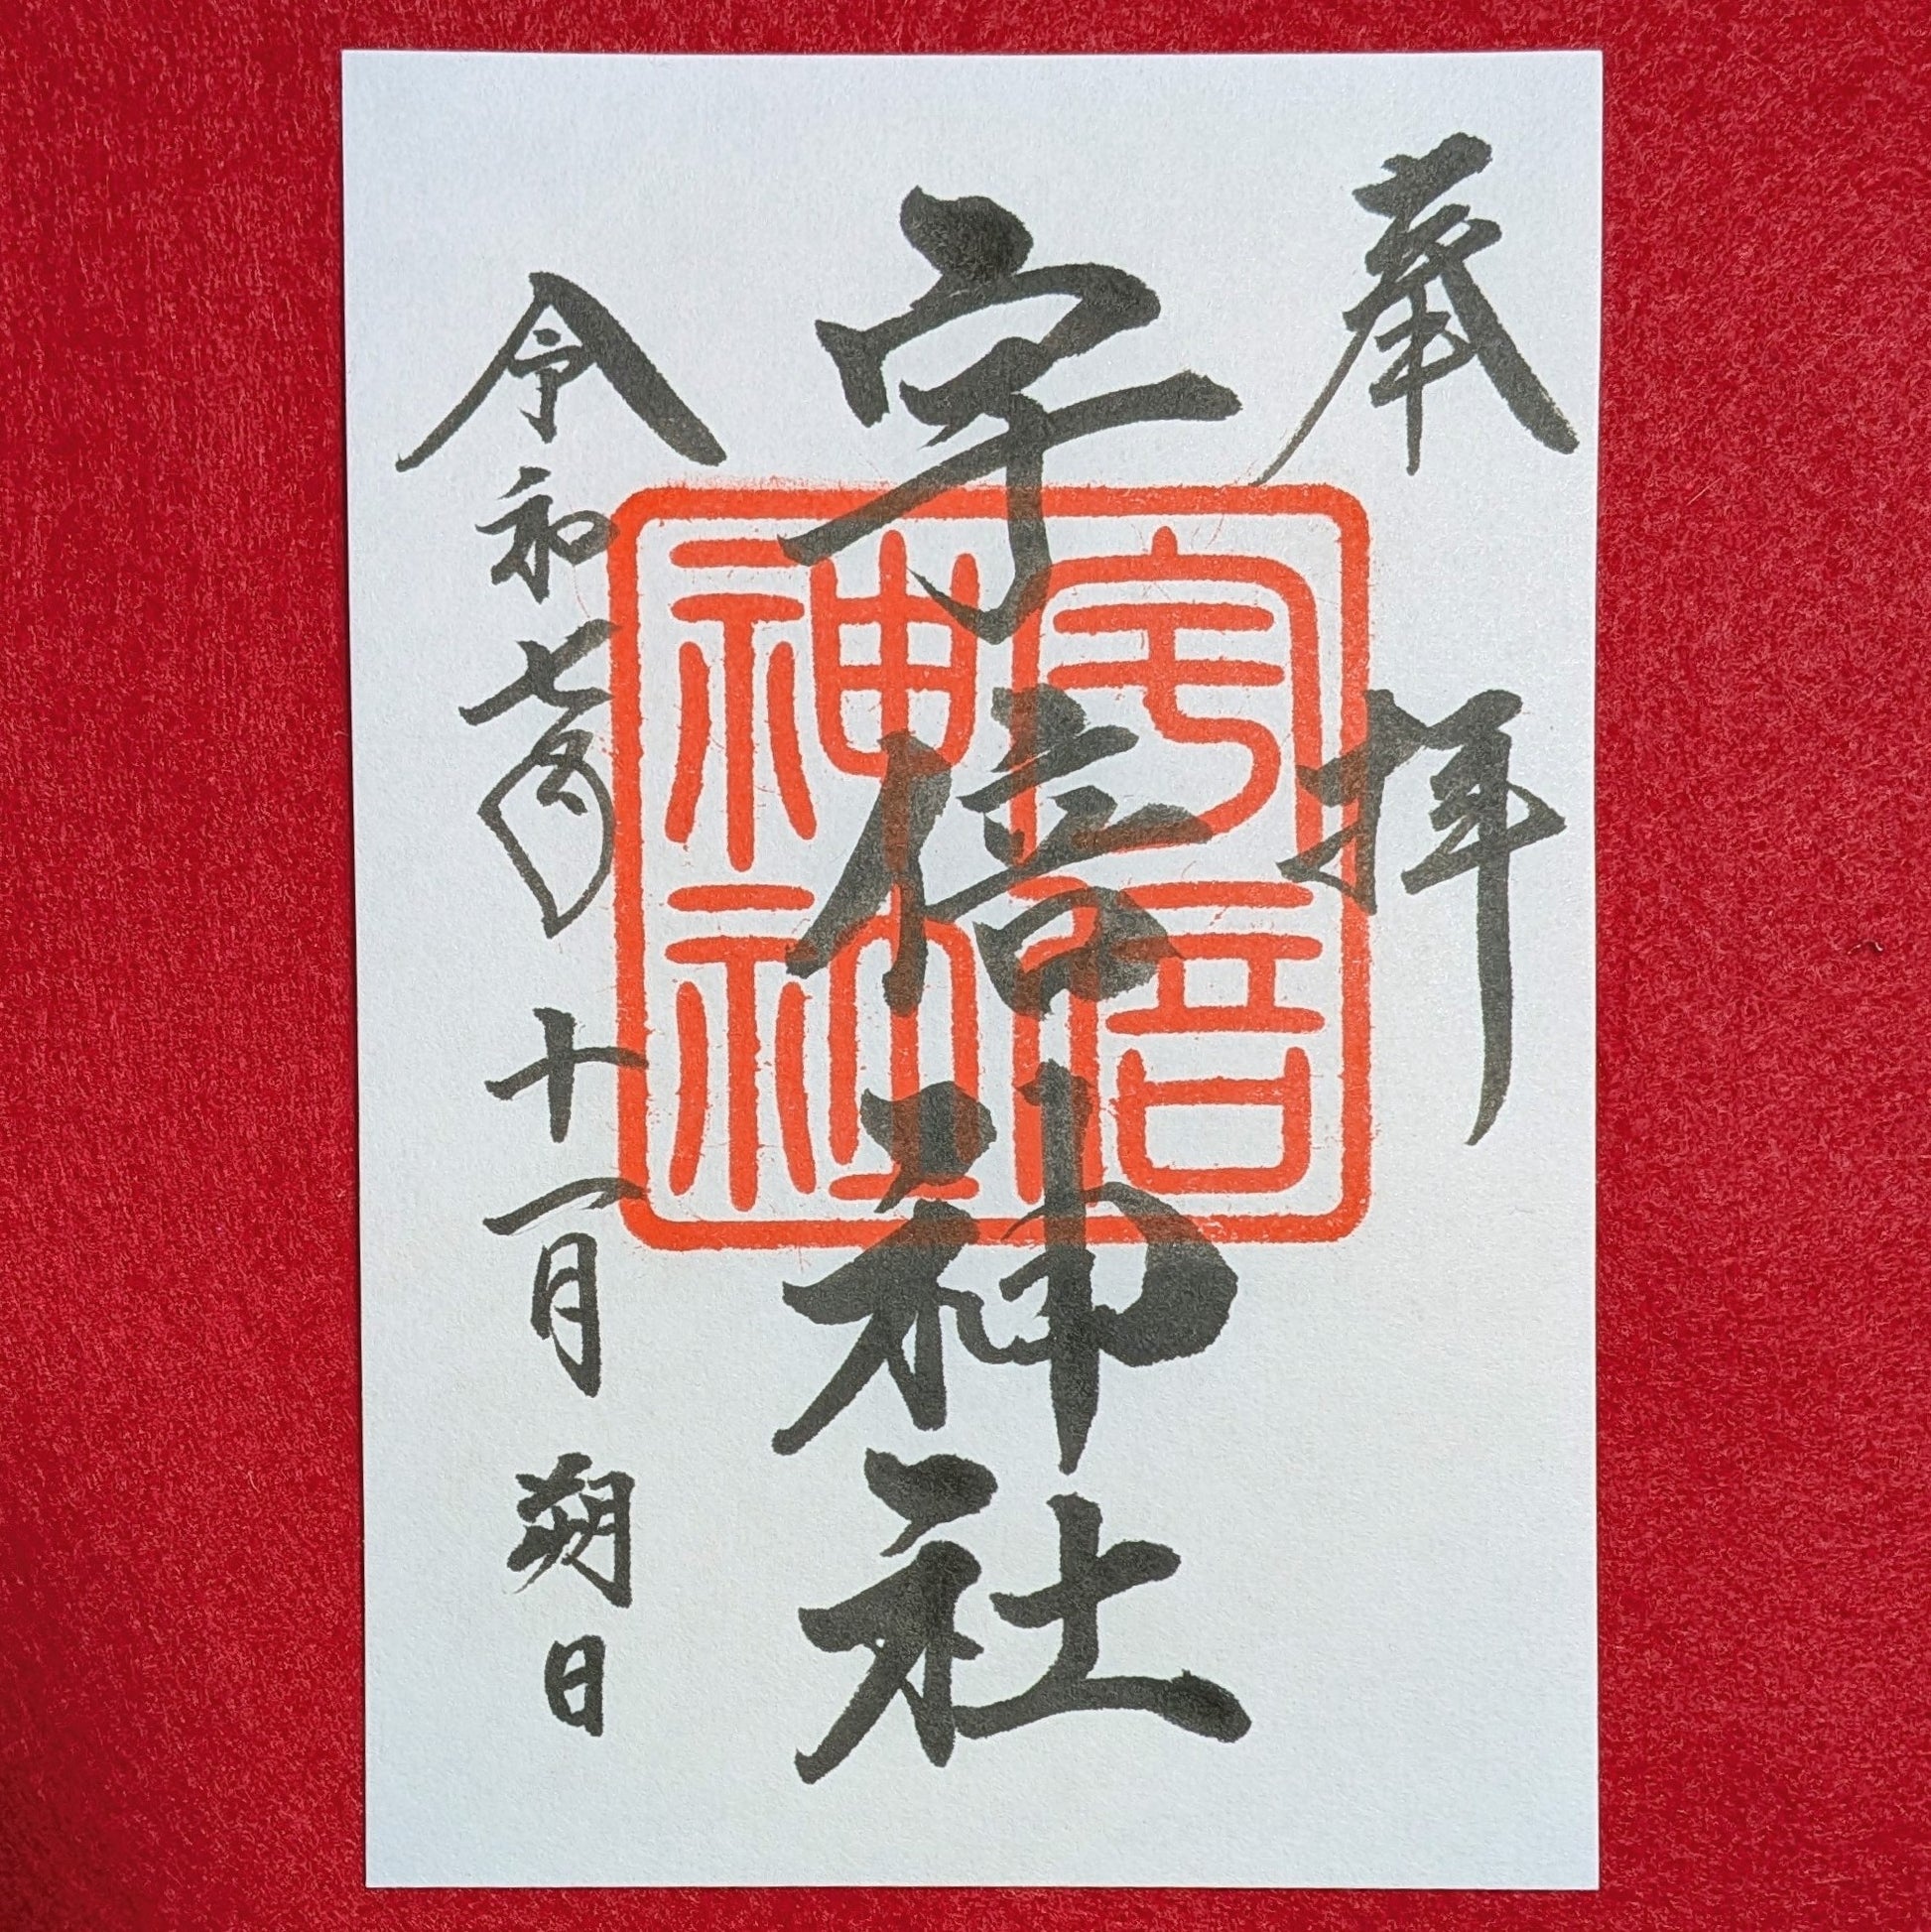 奉拝
宇倍神社
宇倍神社
令和七年十一月朔日